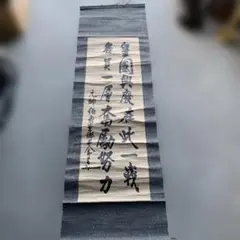 皇國興廢在此一戰
各員一層奮励努力